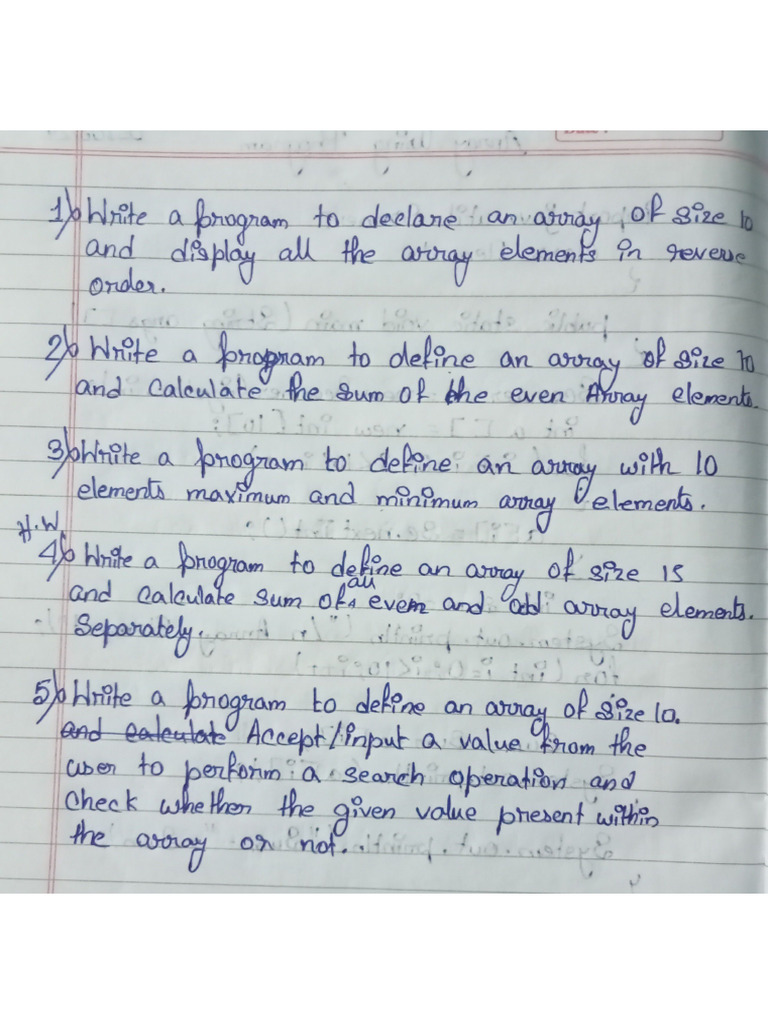 1) Write a program to declare an array of size 10
and display all the array elements in reverse
order.
2) Write a program to define an array of size 10
and calculate the sum of the even Array elements.
3) Write a program to define an array with 10
elements maximum and minimum array elements.
H.W
4) Write a program to define an array of size 15
and calculate sum of all even and odd array elements.
Separately.
5) Write a program to define an array of size 10.
and calculate Accept/input a value from the
user to perform a search operation and
check whether the given value present within
the array or not.